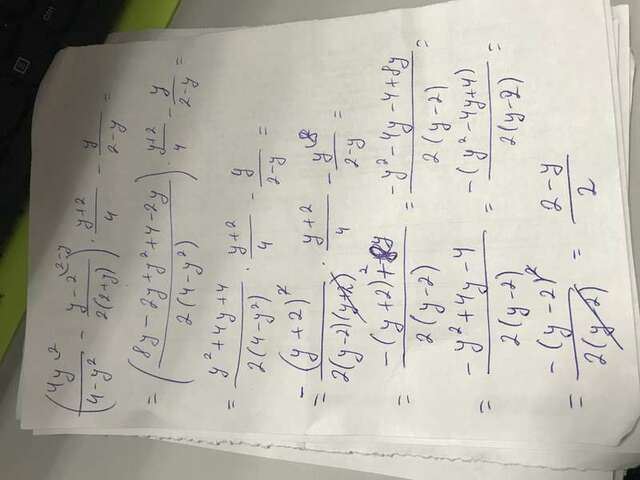 (4y/(4-y²) - (y-2)/(2(2+y))) · (y+2)/4 - y/(2-y) =
= ((8y-2y+y²+4-2y)/(2(4-y²))) · (y+2)/4 - y/(2-y) =
= (y²+4y+4)/(2(4-y²)) · (y+2)/4 - y/(2-y) =
= -(y+2)²/(2(y-2)(y+2)) · (y+2)/4 - y/(2-y) =
= (-(y+2)²+8y)/(2(y-2)) = (-y²-4y-4+8y)/(2(y-2)) =
= (-y²+4y-4)/(2(y-2)) = -(y²-4y+4)/(2(y-2)) =
= -(y-2)²/(2(y-2)) = (2-y)/2